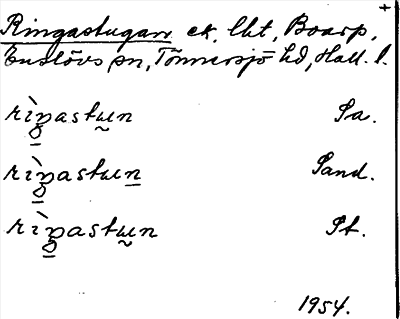 +
Ringastugan ek. lht, Boarp,
Enslövs sn, Tönnersjö hd, Hall. l.
rìŋastu̬n Sa.
rìŋastu̬n Sand.
rìŋastu̬n St.
1954.